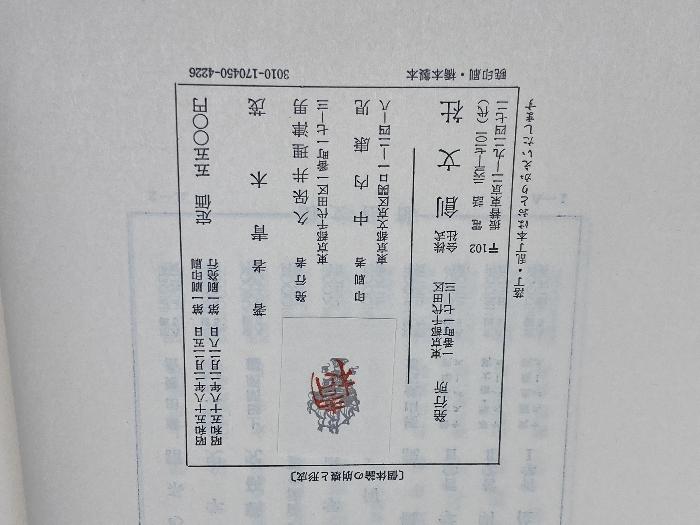 〔個体論の崩壊と形成〕
昭和五十八年二月二五日 第一刷印刷
昭和五十八年二月二八日 第一刷発行
定価 五五〇〇円
著者 青木茂
発行者 久保井理津男
東京都千代田区一番町一七—三
印刷者 中内康児
東京都文京区関口一—二四—八
発行所
東京都千代田区
一番町一七—三
株式会社 創文社
〒102 電話 二六三—七一〇一(代)
振替東京二—九二四七二
落丁・乱丁本はおとりかえいたします
暁印刷・橋本製本
3010-170450-4226